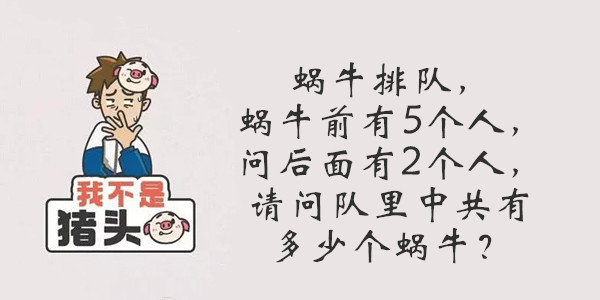 蜗牛排队，
蜗牛前有5个人，
问后面有2个人，
请问队里中共有
多少个蜗牛？
我不是
猪头